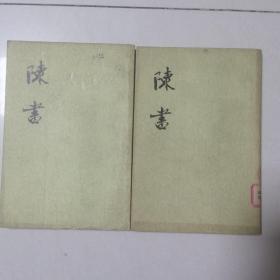 陳
書
陳
書